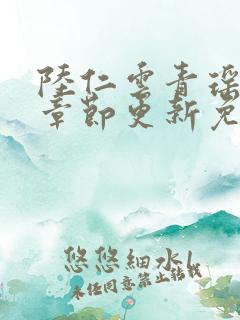 陸仁雲青瑶
章節更新免
悠悠細水l
未经同意禁止转载